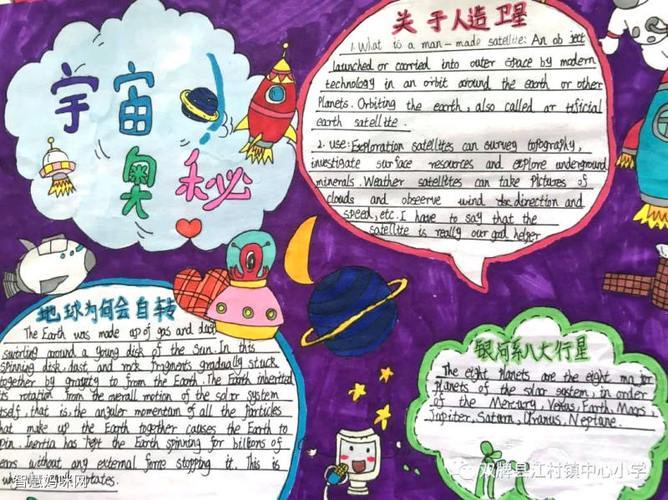 宇宙
奥秘
关于人造卫星
1. What is a man-made satellite: An ob ject
launched or carried into outer space by modern
technology in an orbit around the earth or other
Planets. Orbiting the earth, also called ar tificial
earth satellite.
2. use: Exploration satellites can survey topography,
investigate surface resources and explore underground
minerals. Weather satellites can take Pictures of
clouds and observe wind direction and
speed, etc. I have to say that the
satellite is really our good helper
地球为何会自转
The Earth was made up of gas and dust
swirling around a young disk of the Sun. In this
spinning disk, dust, and rock fragments gradually stuck
together by gravity to from the Earth. The Earth inherited
its rotation from the overall motion of the solar system
itself, that is, the angular momentum of all the particles
that make up the Earth together causes the Earth to
spin. Inertia has kept the Earth spinning for billions of
years without any external force stopping it. This is
why rotates.
银河系八大行星
The eight planets are the eight ma jor
planets of the solar system, in order
of the Mercury, Venus, Earth, Mars
Jupiter, Saturn, Uranus, Neptune.
智慧妈咪网
双牌县江村镇中心小学